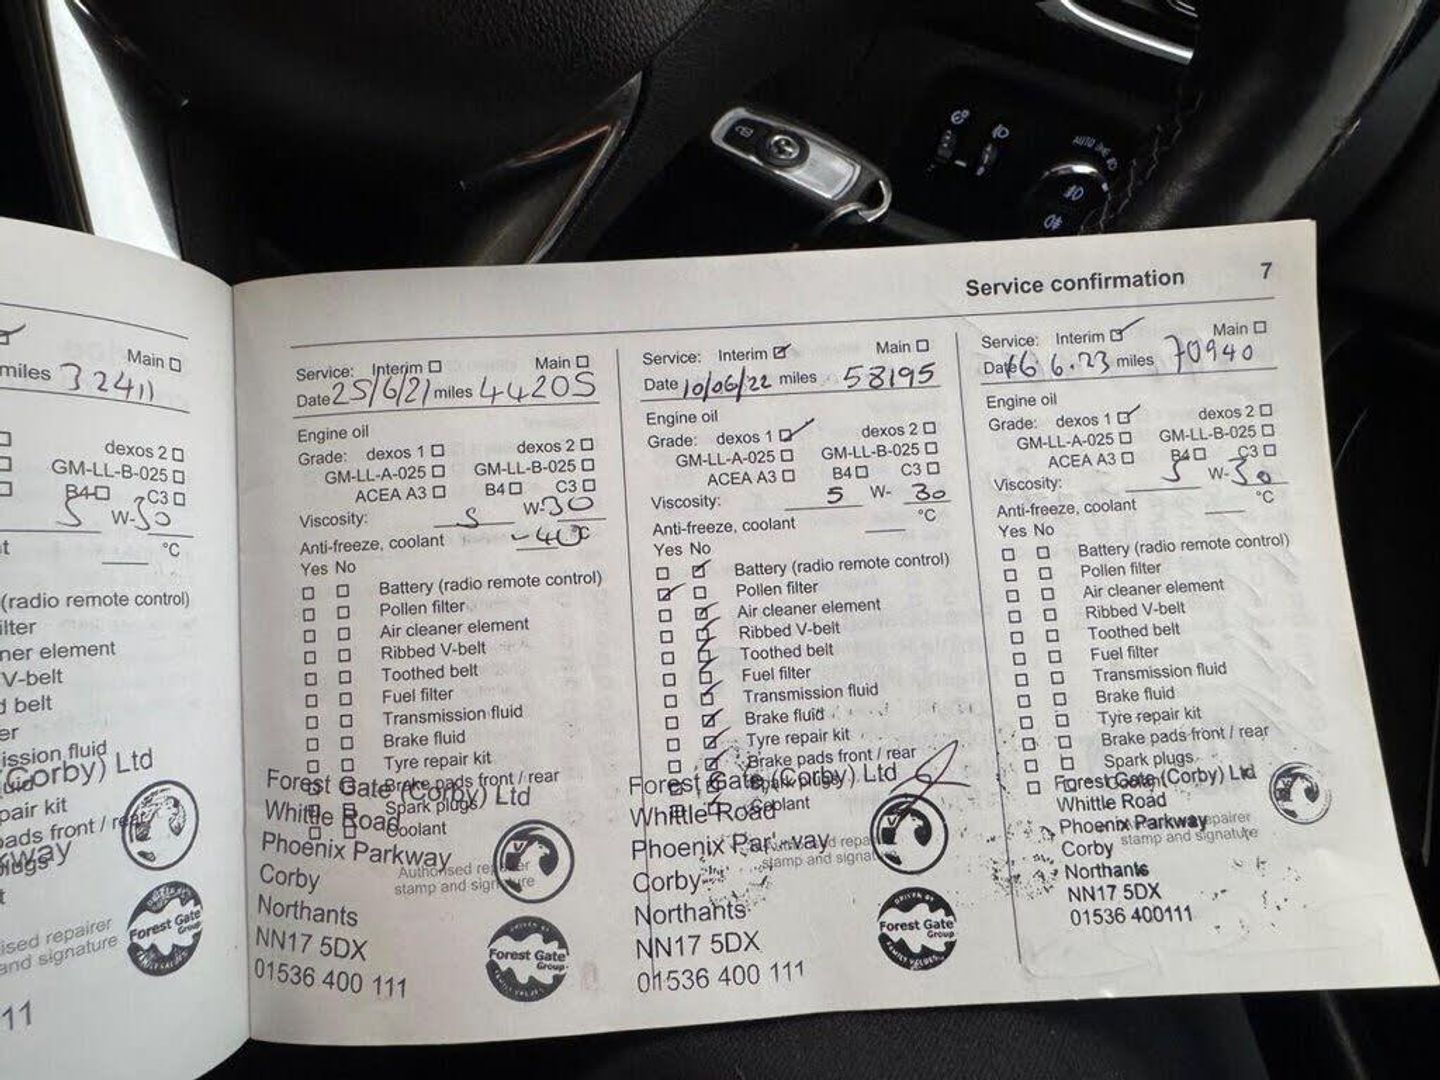 Service confirmation 7
Main
miles 32411
dexos 2
GM-LL-B-025
B4 C3
5 W-30
°C
(radio remote control)
V-belt
ission fluid
(Corby) Ltd
pair kit
pads front / rear
Forest Gate
Group
and signature
11
Service: Interim Main
Date 25/6/21 miles 44205
Engine oil
Grade: dexos 1 dexos 2
GM-LL-A-025 GM-LL-B-025
ACEA A3 B4 C3
Viscosity: 5 W-30
Anti-freeze, coolant -40 °C
Yes No
Battery (radio remote control)
Pollen filter
Air cleaner element
Ribbed V-belt
Toothed belt
Fuel filter
Transmission fluid
Brake fluid
Tyre repair kit
Brake pads front / rear
Spark plugs
Coolant
Authorised repairer
stamp and signature
Forest Gate (Corby) Ltd
Whittle Road
Phoenix Parkway
Corby
Northants
NN17 5DX
01536 400 111
DRIVEN BY
Forest Gate
Group
FAMILY VALUES
Service: Interim Main
Date 10/06/22 miles 58195
Engine oil
Grade: dexos 1 dexos 2
GM-LL-A-025 GM-LL-B-025
ACEA A3 B4 C3
Viscosity: 5 W- 30
Anti-freeze, coolant °C
Yes No
Battery (radio remote control)
Pollen filter
Air cleaner element
Ribbed V-belt
Toothed belt
Fuel filter
Transmission fluid
Brake fluid
Tyre repair kit
Brake pads front / rear
Spark plugs
Coolant
stamp and signature
Forest Gate (Corby) Ltd
Whittle Road
Phoenix Parkway
Corby
Northants
NN17 5DX
01536 400 111
DRIVEN BY
Forest Gate
Group
FAMILY VALUES
Service: Interim Main
Date 16 6.23 miles 70940
Engine oil
Grade: dexos 1 dexos 2
GM-LL-A-025 GM-LL-B-025
ACEA A3 B4 C3
Viscosity: 5 W-30
Anti-freeze, coolant °C
Yes No
Battery (radio remote control)
Pollen filter
Air cleaner element
Ribbed V-belt
Toothed belt
Fuel filter
Transmission fluid
Brake fluid
Tyre repair kit
Brake pads front / rear
Spark plugs
Coolant
Authorised repairer
stamp and signature
Forest Gate (Corby) Ltd
Whittle Road
Phoenix Parkway
Corby
Northants
NN17 5DX
01536 400111